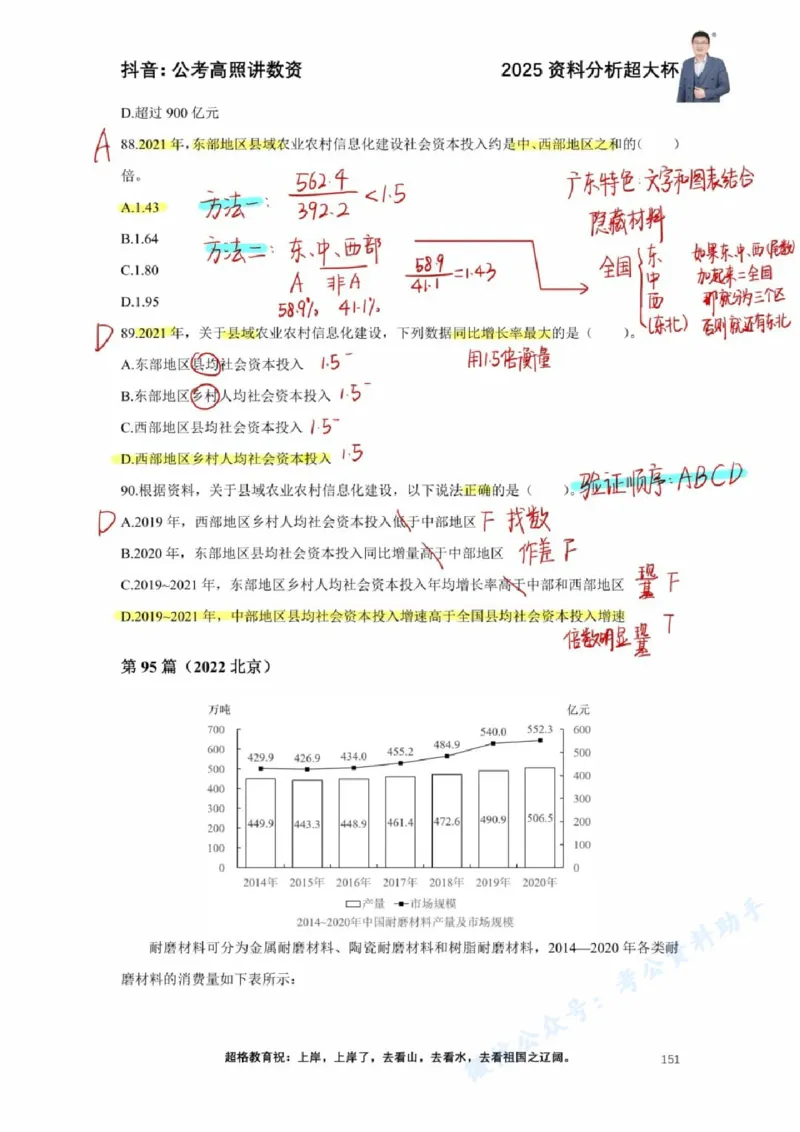 抖音：公考高照讲数资
2025 资料分析超大杯
D.超过 900 亿元
A
88.2021 年，东部地区县域农业农村信息化建设社会资本投入约是中、西部地区之和的（ ）
倍。
A.1.43
B.1.64
C.1.80
D.1.95
方法一： 562.4 / 392.2 <1.5
方法二：东、中、西部
A 非A
58.9% 41.1%
58.9 / 41.1 =1.43
广东特色：文字和图表结合
隐藏材料
全国
东
中
西
(东北)
如果东、中、西(尾数)
加起来=全国
那就分为三个区
否则就还有东北
D
89.2021 年，关于县域农业农村信息化建设，下列数据同比增长率最大的是（ ）。
用1.5倍衡量
A.东部地区县均社会资本投入 1.5⁻
B.东部地区乡村人均社会资本投入 1.5⁻
C.西部地区县均社会资本投入 1.5⁻
D.西部地区乡村人均社会资本投入 1.5
90.根据资料，关于县域农业农村信息化建设，以下说法正确的是（ ）。
验证顺序：ABCD
D
A.2019 年，西部地区乡村人均社会资本投入低于中部地区 F 找数
B.2020 年，东部地区县均社会资本投入同比增量高于中部地区 作差 F
C.2019~2021 年，东部地区乡村人均社会资本投入年均增长率高于中部和西部地区 现/基 F
D.2019~2021 年，中部地区县均社会资本投入增速高于全国县均社会资本投入增速 T
倍数明显 现/基
第 95 篇（2022 北京）
万吨 亿元
700 600 500 400 300 200 100 0
600 500 400 300 200 100 0
429.9 426.9 434.0 455.2 484.9 540.0 552.3
449.9 443.3 448.9 461.4 472.6 490.9 506.5
2014年 2015年 2016年 2017年 2018年 2019年 2020年
产量 市场规模
2014~2020年中国耐磨材料产量及市场规模
耐磨材料可分为金属耐磨材料、陶瓷耐磨材料和树脂耐磨材料，2014—2020 年各类耐
磨材料的消费量如下表所示：
微信公众号：考公资料助手
超格教育祝：上岸，上岸了，去看山，去看水，去看祖国之辽阔。
151